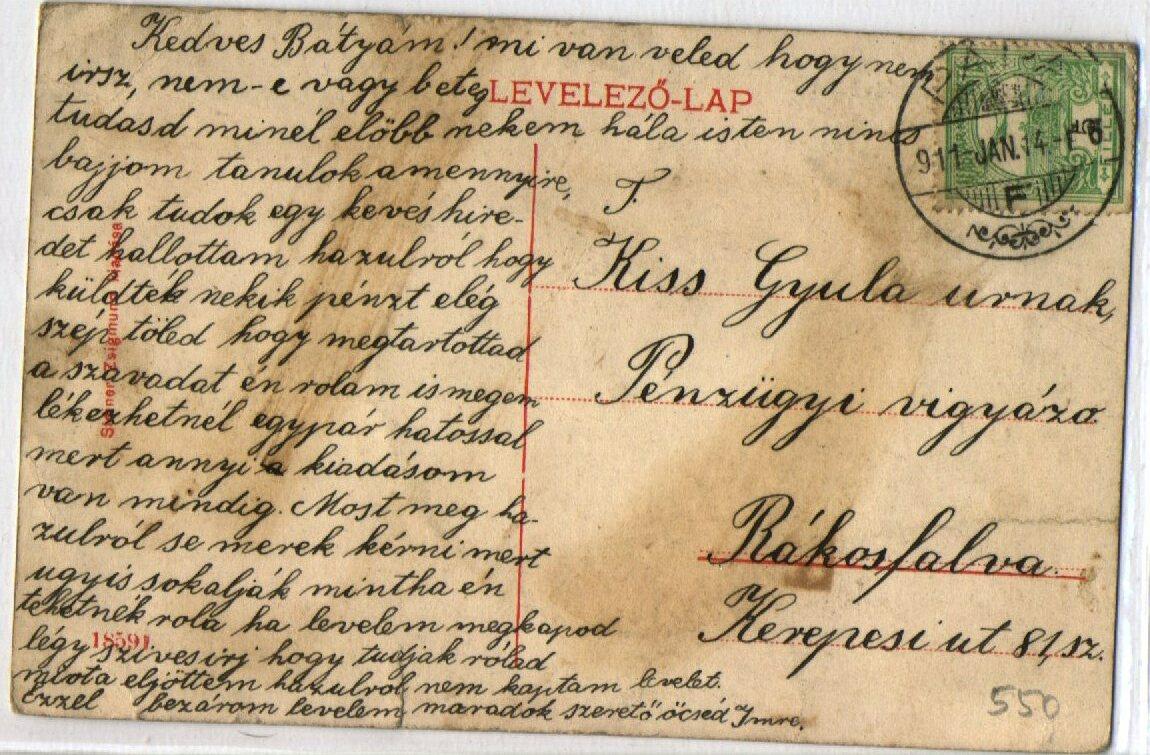 Kedves Bátyám! mi van veled hogy nem
irsz, nem-e vagy beteg
LEVELEZŐ-LAP
tudasd minél elöbb nekem hála isten nincs
bajjom tanulok amennyire,
csak tudok egy kevés hire-
det hallottam hazulról hogy
küldték nekik pénzt elég
szép töled hogy megtartottad
a szavadat én rolam is megem
lékezhetnél egypár hatossal
mert annyi a kiadásom
van mindig. Most meg ha-
zulról se merek kérni mert
ugyis sokalják mintha én
tehetnék rola ha levelem megkapod
légy szives irj hogy tudjak rolad
miota eljöttem hazulrol nem kaptam levelet.
ezzel bezárom levelem maradok szerető öcséd Imre.
18591
kiadása
911-JAN.14.
F
T.
Kiss Gyula urnak,
Pénzügyi vigyázo
Rákosfalva.
Kerepesi ut 81, sz.
550